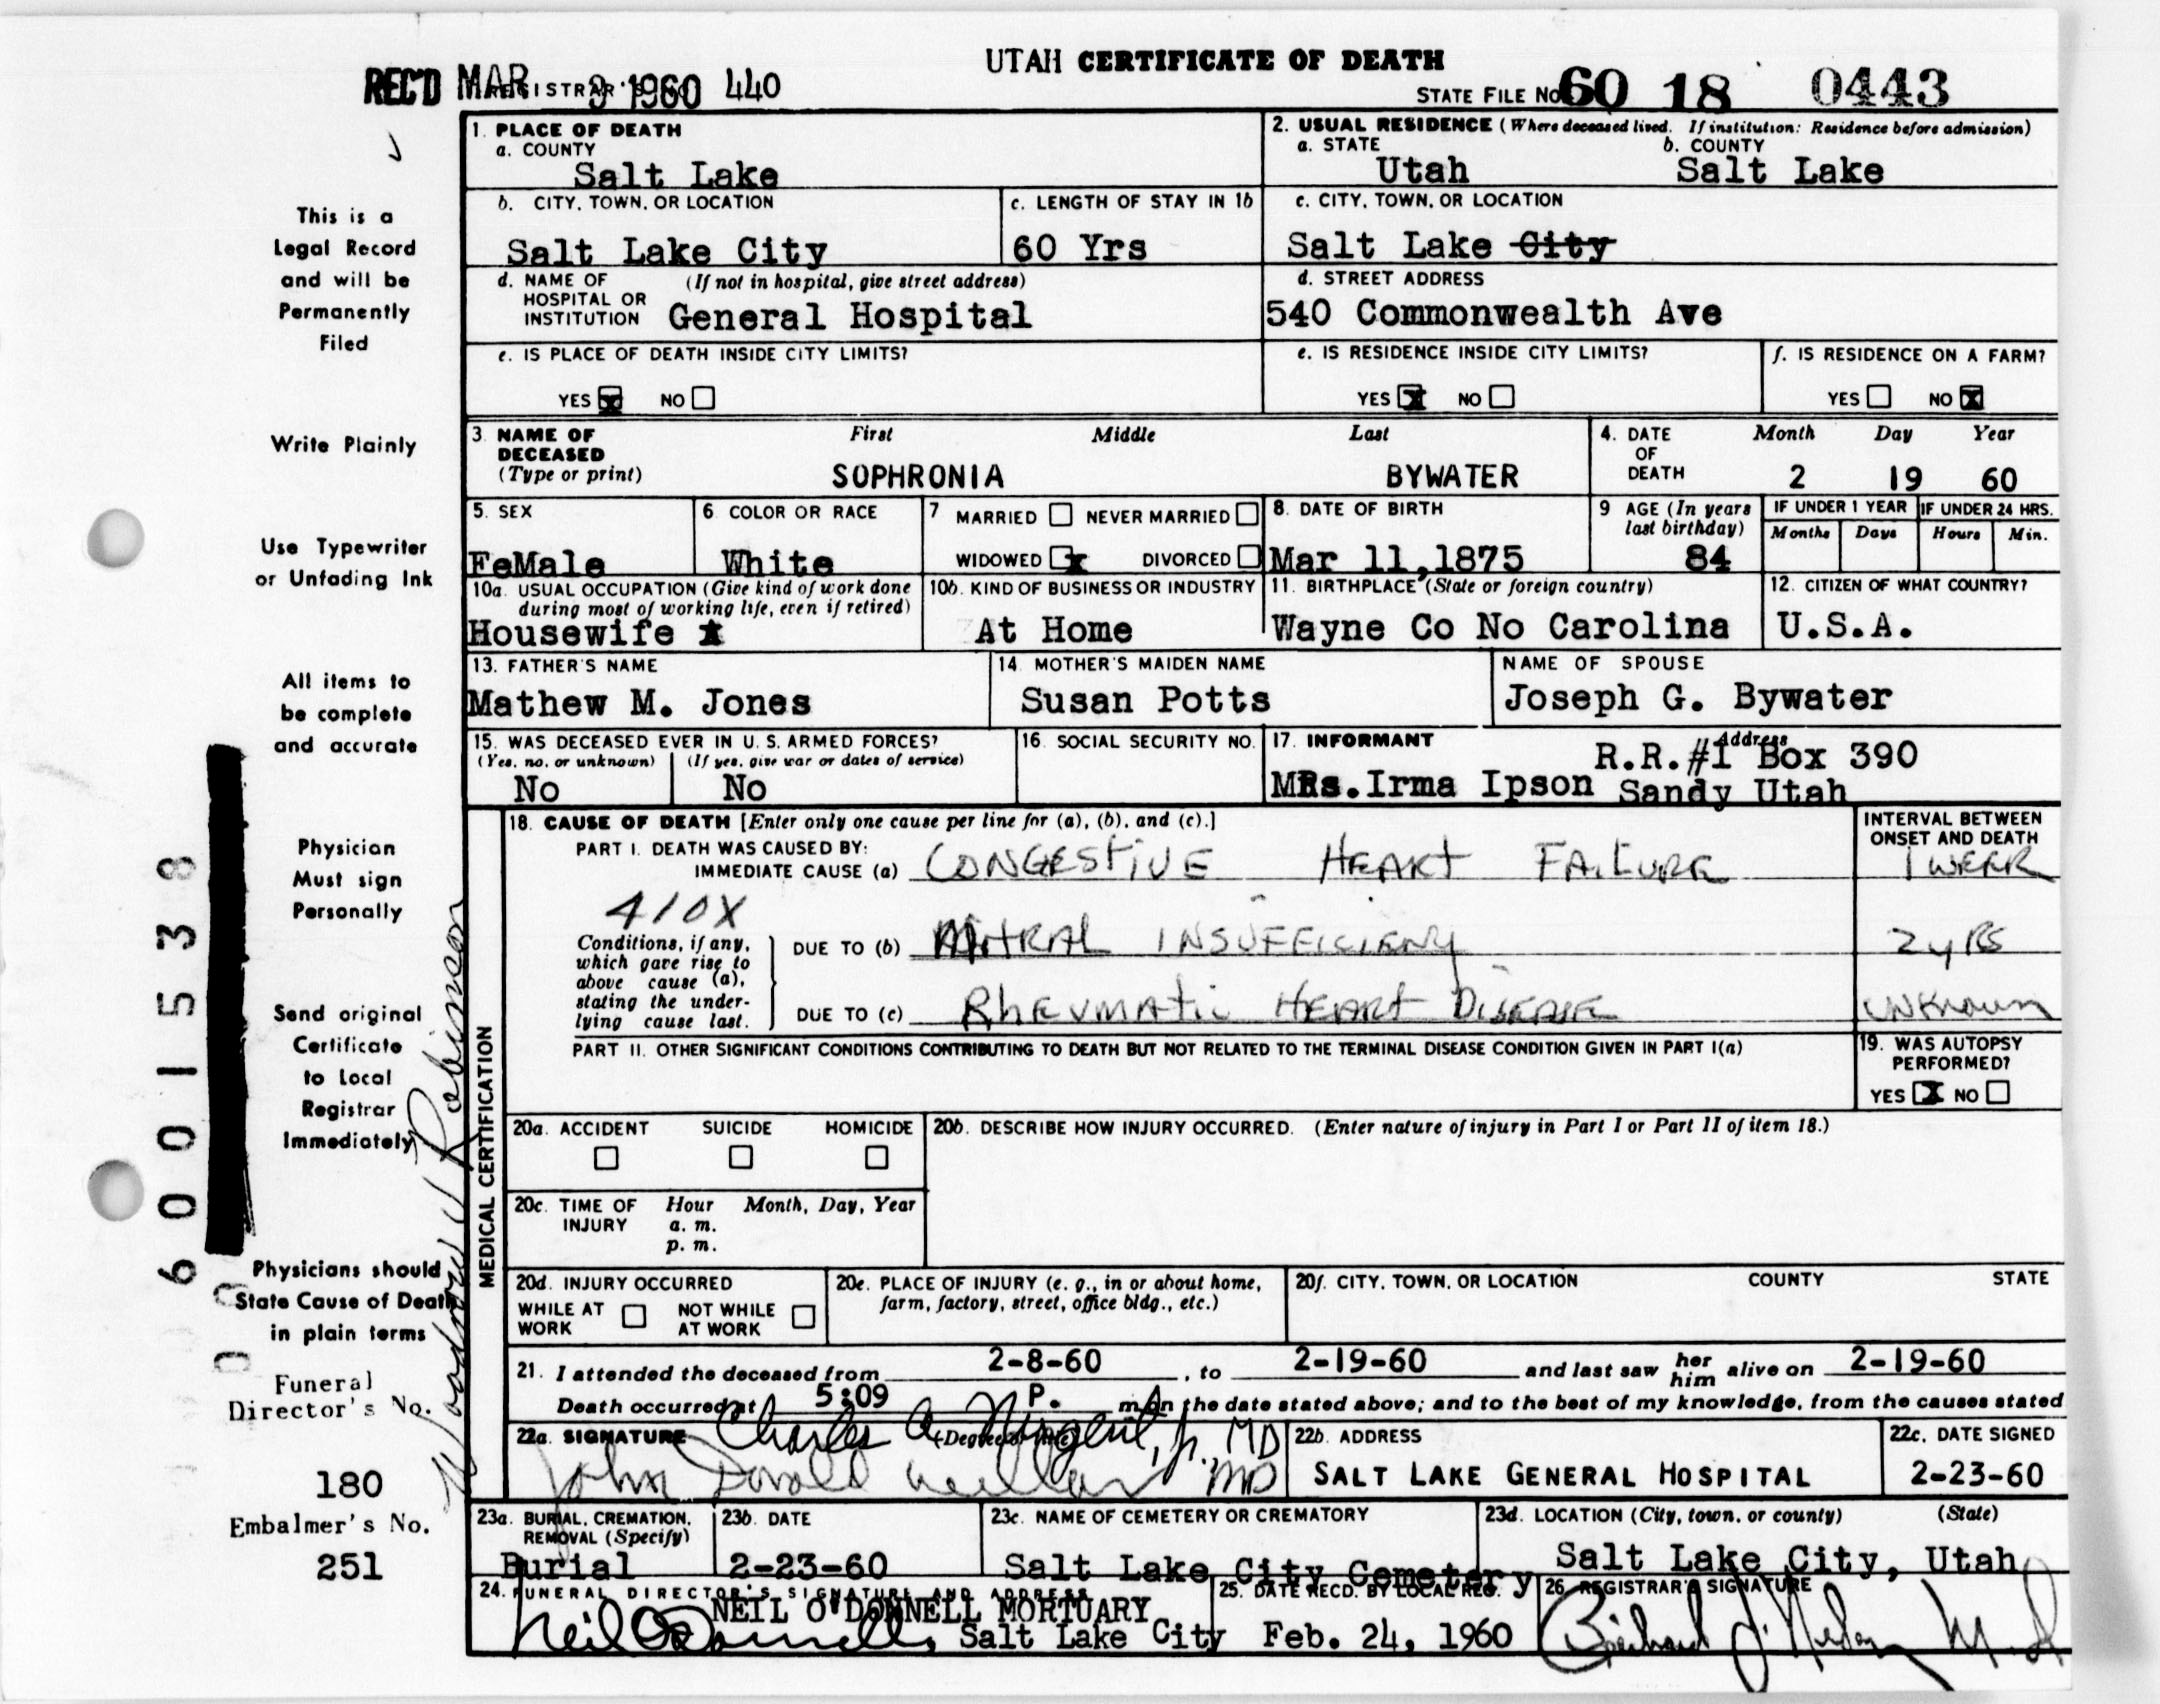 UTAH CERTIFICATE OF DEATH
REC'D MAR 9 1960 440
STATE FILE NO. 60 18 0443
This is a
Legal Record
and will be
Permanently
Filed
Write Plainly
Use Typewriter
or Unfading Ink
All items to
be complete
and accurate
Physician
Must sign
Personally
Send original
Certificate
to Local
Registrar
Immediately
Physicians should
State Cause of Death
in plain terms
Funeral
Director's No.
180
Embalmer's No.
251
6001538
Robinson
1. PLACE OF DEATH
a. COUNTY
Salt Lake
2. USUAL RESIDENCE (Where deceased lived. If institution: Residence before admission)
a. STATE b. COUNTY
Utah Salt Lake
b. CITY, TOWN, OR LOCATION
Salt Lake City
c. LENGTH OF STAY IN 1b
60 Yrs
c. CITY, TOWN, OR LOCATION
Salt Lake City
d. NAME OF (If not in hospital, give street address)
HOSPITAL OR
INSTITUTION General Hospital
d. STREET ADDRESS
540 Commonwealth Ave
e. IS PLACE OF DEATH INSIDE CITY LIMITS?
YES X NO
e. IS RESIDENCE INSIDE CITY LIMITS?
YES X NO
f. IS RESIDENCE ON A FARM?
YES NO X
3. NAME OF First Middle Last
DECEASED
(Type or print) SOPHRONIA BYWATER
4. DATE Month Day Year
OF
DEATH 2 19 60
5. SEX
FeMale
6. COLOR OR RACE
White
7 MARRIED NEVER MARRIED
WIDOWED x DIVORCED
8. DATE OF BIRTH
Mar 11,1875
9 AGE (In years
last birthday)
84
IF UNDER 1 YEAR IF UNDER 24 HRS.
Months Days Hours Min.
10a. USUAL OCCUPATION (Give kind of work done
during most of working life, even if retired)
Housewife
10b. KIND OF BUSINESS OR INDUSTRY
At Home
11. BIRTHPLACE (State or foreign country)
Wayne Co No Carolina
12. CITIZEN OF WHAT COUNTRY?
U.S.A.
13. FATHER'S NAME
Mathew M. Jones
14. MOTHER'S MAIDEN NAME
Susan Potts
NAME OF SPOUSE
Joseph G. Bywater
15. WAS DECEASED EVER IN U. S. ARMED FORCES?
(Yes, no, or unknown) (If yes, give war or dates of service)
No No
16. SOCIAL SECURITY NO.
17. INFORMANT Address
R.R.#1 Box 390
MRs.Irma Ipson Sandy Utah
MEDICAL CERTIFICATION
18. CAUSE OF DEATH [Enter only one cause per line for (a), (b), and (c).]
PART I. DEATH WAS CAUSED BY:
IMMEDIATE CAUSE (a) CONGESTIVE HEART FAILURE
INTERVAL BETWEEN
ONSET AND DEATH
1 WEEK
410X
Conditions, if any,
which gave rise to
above cause (a),
stating the under-
lying cause last.
DUE TO (b) MITRAL INSUFFICIENCY 2 yRS
DUE TO (c) RHEUMATIC HEART DISEASE UNKNOWN
PART II. OTHER SIGNIFICANT CONDITIONS CONTRIBUTING TO DEATH BUT NOT RELATED TO THE TERMINAL DISEASE CONDITION GIVEN IN PART I(a)
19. WAS AUTOPSY
PERFORMED?
YES X NO
20a. ACCIDENT SUICIDE HOMICIDE
20b. DESCRIBE HOW INJURY OCCURRED. (Enter nature of injury in Part I or Part II of item 18.)
20c. TIME OF Hour Month, Day, Year
INJURY a. m.
p. m.
20d. INJURY OCCURRED
WHILE AT NOT WHILE
WORK AT WORK
20e. PLACE OF INJURY (e. g., in or about home,
farm, factory, street, office bldg., etc.)
20f. CITY, TOWN, OR LOCATION COUNTY STATE
21. I attended the deceased from 2-8-60, to 2-19-60 and last saw her him alive on 2-19-60
Death occurred at 5:09 P. m on the date stated above; and to the best of my knowledge, from the causes stated
22a. SIGNATURE (Degree or title)
Charles A. Nugent, Jr., MD
John Donald MD
22b. ADDRESS
SALT LAKE GENERAL HOSPITAL
22c. DATE SIGNED
2-23-60
23a. BURIAL, CREMATION,
REMOVAL (Specify)
Burial
23b. DATE
2-23-60
23c. NAME OF CEMETERY OR CREMATORY
Salt Lake City Cemetery
23d. LOCATION (City, town, or county) (State)
Salt Lake City, Utah
24. FUNERAL DIRECTOR'S SIGNATURE AND ADDRESS
NEIL O'DONNELL MORTUARY
Neil O'Donnell, Salt Lake City
25. DATE RECD. BY LOCAL REG.
Feb. 24, 1960
26. REGISTRAR'S SIGNATURE